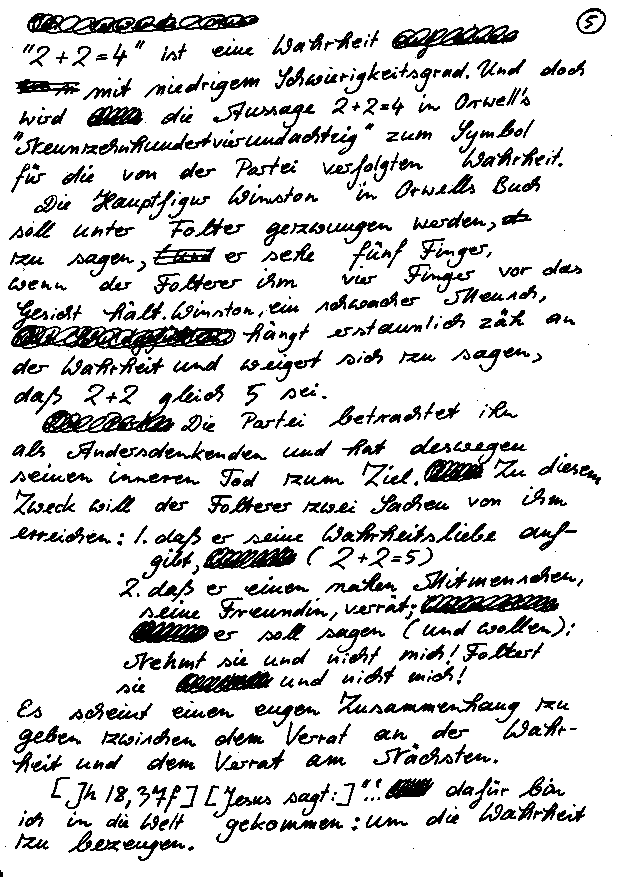 5
"2+2=4" ist eine Wahrheit
mit niedrigem Schwierigkeitsgrad. Und doch
wird die Aussage 2+2=4 in Orwell's
"Neunzehnhundertvierundachtzig" zum Symbol
für die von der Partei verfolgten Wahrheit.
Die Hauptfigur Winston in Orwells Buch
soll unter Folter gezwungen werden,
zu sagen, er sehe fünf Finger,
wenn der Folterer ihm vier Finger vor das
Gesicht hält. Winston, ein schwacher Mensch,
hängt erstaunlich zäh an
der Wahrheit und weigert sich zu sagen,
daß 2+2 gleich 5 sei.
Die Partei betrachtet ihn
als Andersdenkenden und hat deswegen
seinen inneren Tod zum Ziel. Zu diesem
Zweck will der Folterer zwei Sachen von ihm
erreichen: 1. daß er seine Wahrheitsliebe auf-
gibt, (2+2=5)
2. daß er einen nahen Mitmenschen,
seine Freundin, verrät;
er soll sagen (und wollen):
Nehmt sie und nicht mich! Foltert
sie und nicht mich!
Es scheint einen engen Zusammenhang zu
geben zwischen dem Verrat an der Wahr-
heit und dem Verrat am Nächsten.
[Jh 18,37f] [Jesus sagt:] "... dafür bin
ich in die Welt gekommen: um die Wahrheit
zu bezeugen.